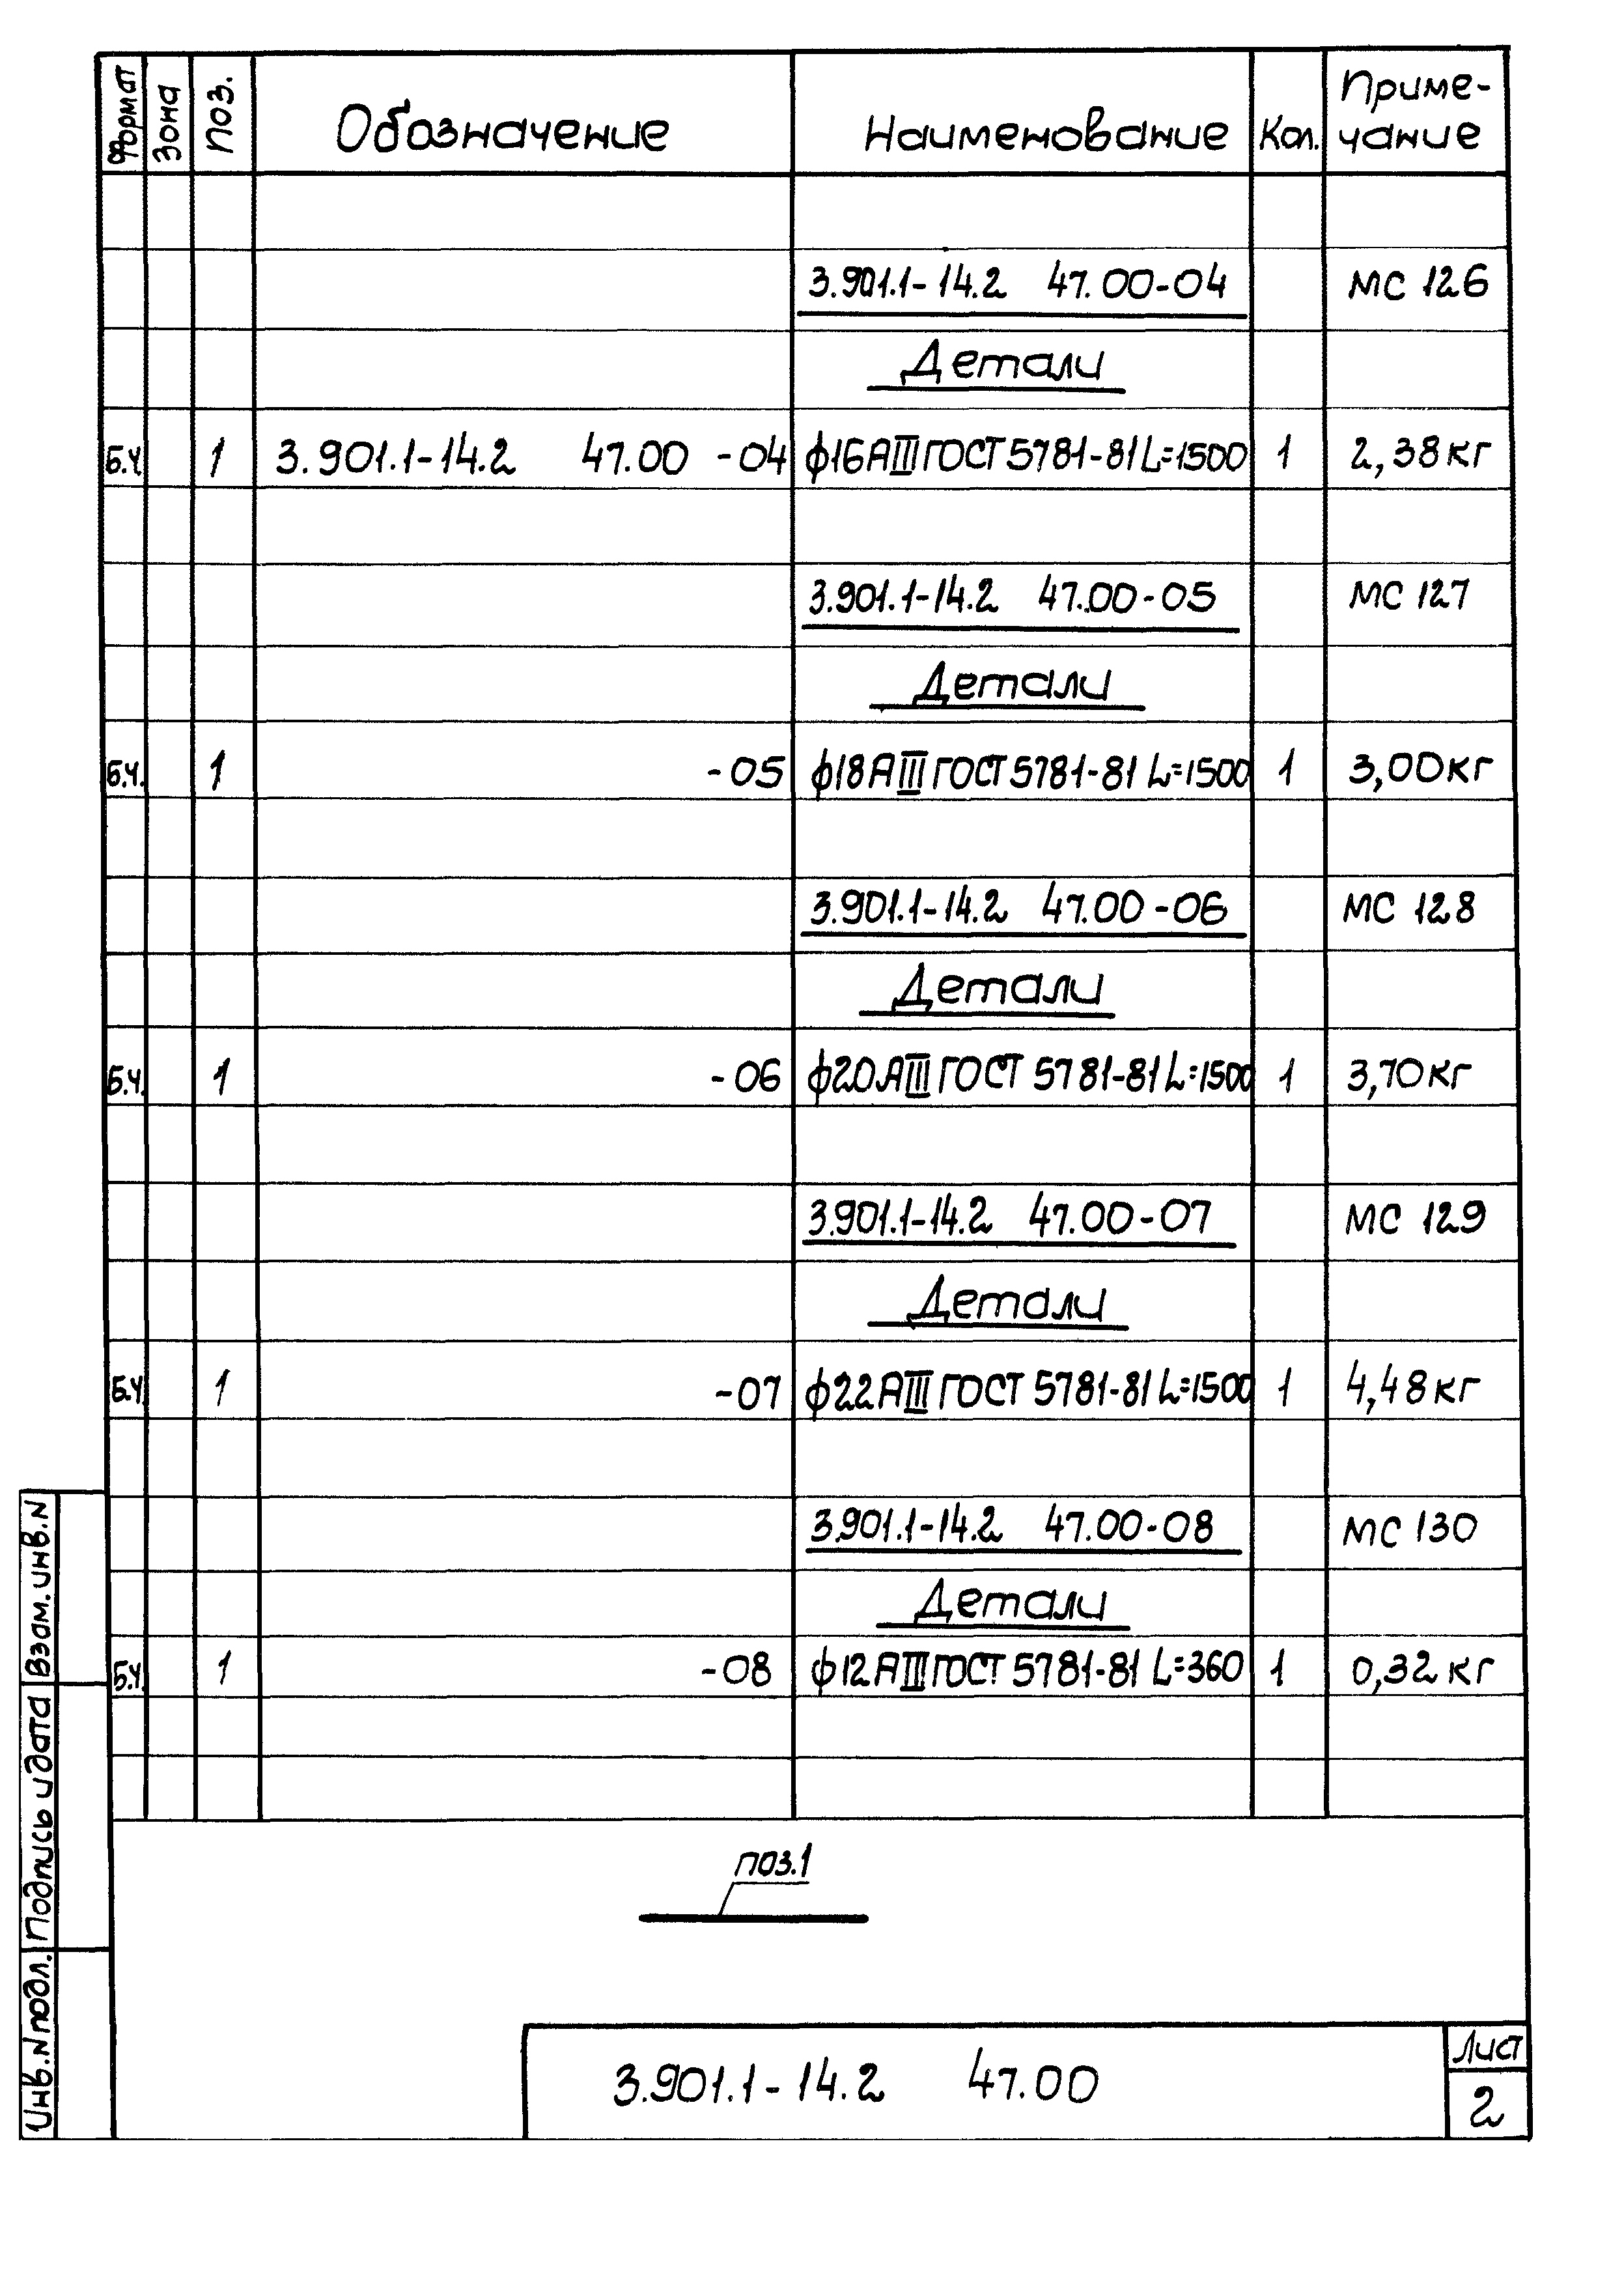 Формат Зона Поз. Обозначение Наименование Кол. Приме-
чание
3.901.1-14.2 47.00-04 МС 126
Детали
Б.Ч. 1 3.901.1-14.2 47.00 -04 ф16АIII ГОСТ 5781-81 L=1500 1 2,38кг
3.901.1-14.2 47.00-05 МС 127
Детали
Б.Ч. 1 -05 ф18АIII ГОСТ 5781-81 L=1500 1 3,00кг
3.901.1-14.2 47.00-06 МС 128
Детали
Б.Ч. 1 -06 ф20АIII ГОСТ 5781-81 L=1500 1 3,70кг
3.901.1-14.2 47.00-07 МС 129
Детали
Б.Ч. 1 -07 ф22АIII ГОСТ 5781-81 L=1500 1 4,48кг
3.901.1-14.2 47.00-08 МС 130
Детали
Б.Ч. 1 -08 ф12АIII ГОСТ 5781-81 L=360 1 0,32кг
поз.1
Взам.инв.N
Подпись и дата
Инв.N подл.
3.901.1-14.2 47.00
Лист
2